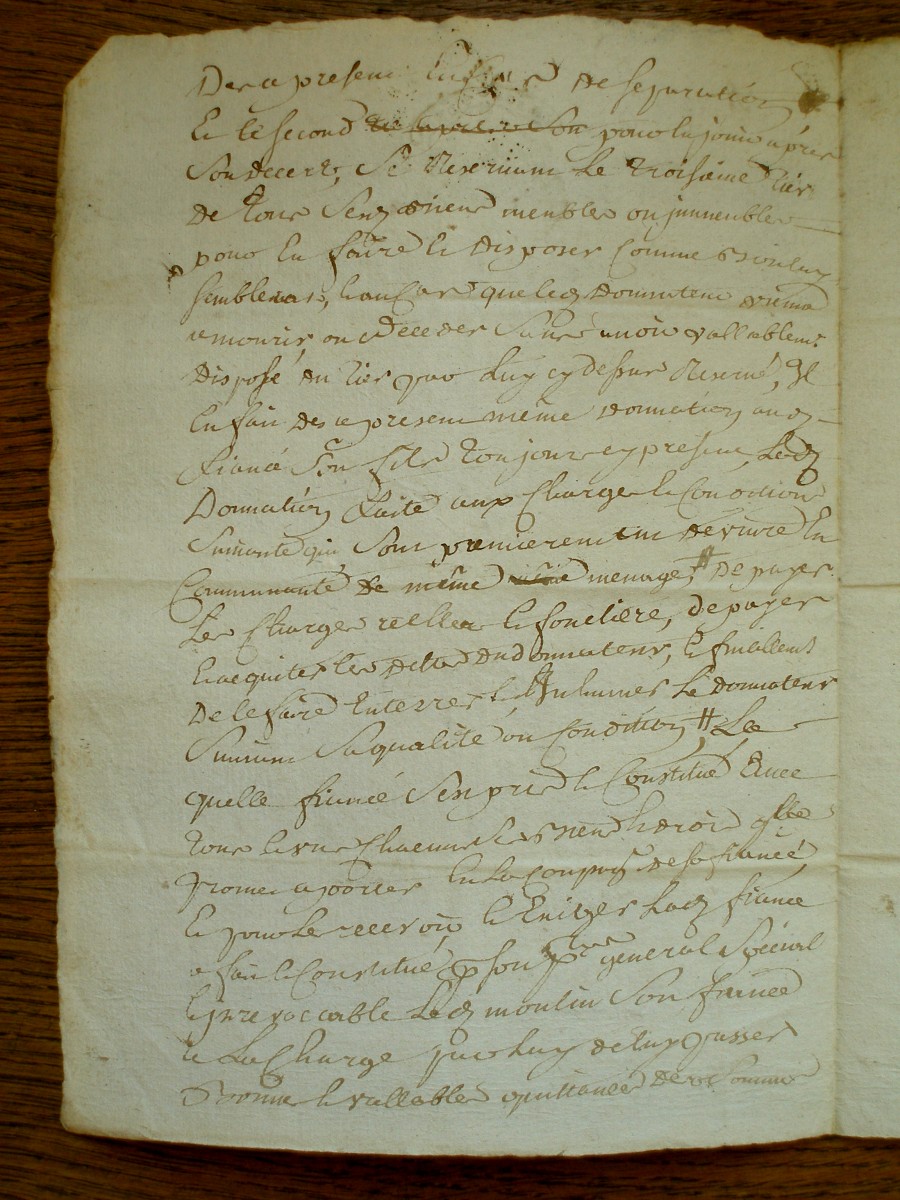 Des a present En cas De separation
Et le second pour la jouir apres
Son deceds, Se Reservant Le troisieme tier
De tous Sesd. biens meubles ou jmmeubles
pour En faire Et Disposer Comme
semblera, Et au Cas que led. Donnateur
a mourir ou deceder Sans avoir vallablemt
Disposé du tier par Luy cy dessus Reservé, Il
En fait des a present même Donnation aud.
Fiancé Son fils toujours cy present, Lad.
Donnation faite aux Charges Et Conditions
Suivante qui Sont premierement De vivre En
Communauté De même menage, # De payer
Les Charges reelles Et fonciere, De payer
Et acquiter les Dettes Du Donnateur, Et finallemt
De le faire Enterrer Et Inhumer Le Donnateur
Suivant Sa qualité ou Condition # La
quelle fiancé Sen prend Et Constitue Avec
tous Et un Chacuns Ses biens Et droit qlle
promet aporter En La Compag. de so fiancé
Et pour Le recevoir Et Exiger Lad. fiancé
a fait Et Constitué p son pr general Special
Et jrrevoccable Led. moulin Son fiancé
a La Charge par Luy de luy passer
Bonne Et vallable quittance des Somme